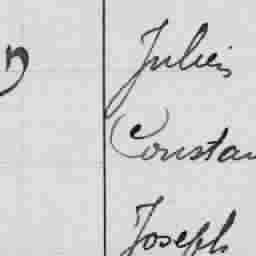 Julien
Constan
Joseph